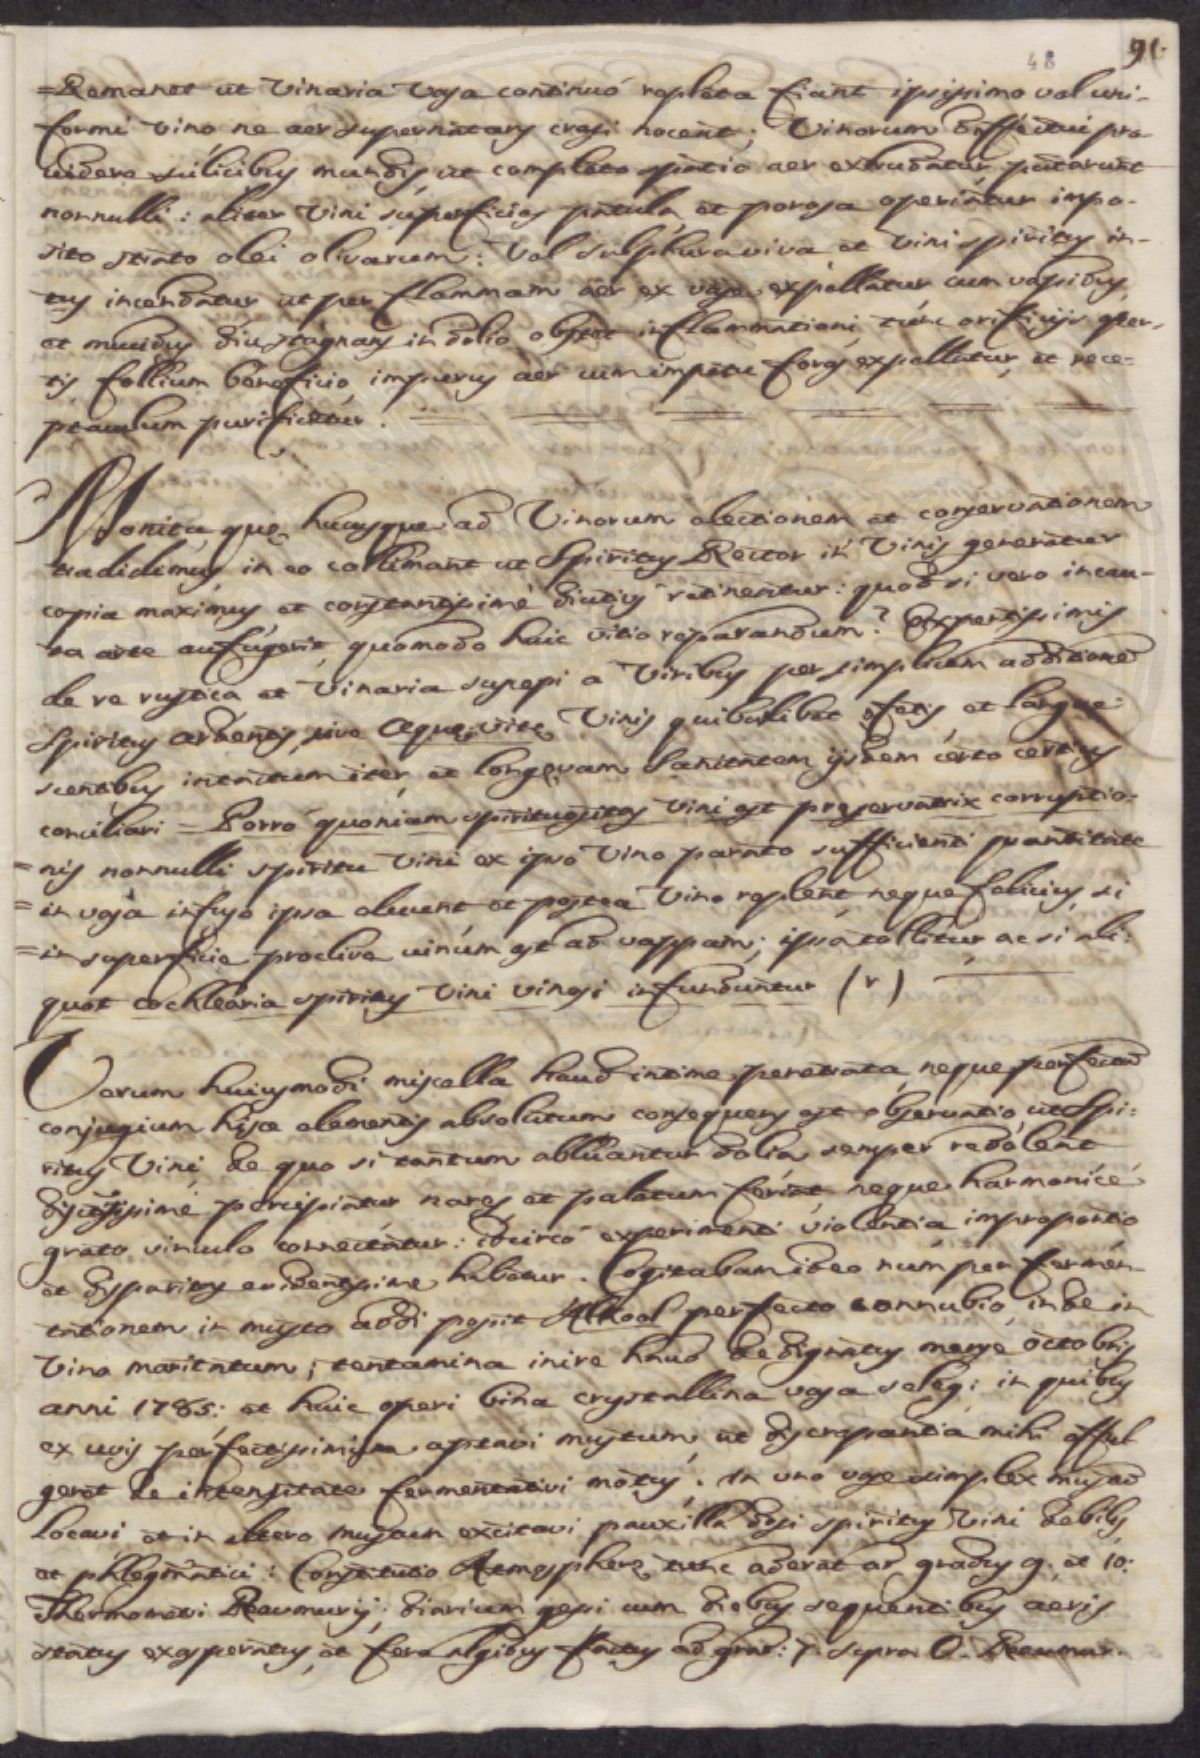 48 91.
=Remanet ut Vinaria Vasa continuó repleta fiant ipsissimo vel uni-
formi vino ne aer supernatans crasi noceat; Vinorum deffectui pro-
videre silicibus mundis, ut completo spatio aer extrudatur putarunt
nonnulli: aliter Vini superficies patula et porosa operiatur impo-
sito strato olei olivarum: Vel sulphura viva et Vini spiritus in-
tus incendatur ut per flammam aer ex vase expellatur cum vapidus,
et mucidus diu stagnans in dolio obstet inflammationi, tunc orificijs aper-
tis follium beneficio impurus aer cum impetu foras expellatur, et rece-
ptaculum purificetur.
Monita que hucusque ad Vinorum electionem et conservationem
tradidimus in eo collimant ut Spiritus Rector in Vinis generetur
copia maximus, et constantissimè diutius retinentur: quod si vero incau-
ta arte aufugerit, quomodo huic vitio reparandum? Expertissimis
de re rustica et Vinaria suscepi a Viribus per simplicem additione
Spiritus ardentis, sive Aque vite, Vinis quibuslibet efetis, et langue-
scentibus intentum iter, et longevam sanitatem ijsdem certo certius
conciliari = Porro quoniam spirituositas vini est preservatrix corruptio-
= nis nonnulli spiritu Vini ex ipso Vino parato sufficienti quantitate
= in vasa infuso ipsa eluunt et postea Vino replent neque felicius, si
= in superficie proclive vinum est ad vappam, ipsa tollitur ac si ali-
quot cochlearia spiritus Vini vinosi infunduntur (r)
Verum huiusmodi miscella haud intime penetrata, neque perfectum
conjugium hisce elementis absolutum consequens est observatio, ut Spi-
ritus Vini de quo si tantum abluantur dolia semper redolent
distinctissime percipiatur nares, et palatum feriat neque harmonicè
grato vinculo connectatur: idcircó experimenti violentia, improportio
et disparitas evidentissime habetur. Cogitabam ideo num per fermen-
tationem in musto addi possit Alkool perfecto connubio inde in
Vino maritatum; tentamina inire haud dedignatus mense Octobris
anni 1785: et huic operi bina crystallina vasa selegi in quibus
ex uvis perfectissimis aptavi mustum, ut discrepantia mihi afful
geret de intensitate fermentativi motus. In uno vase simplex mustum
locavi et in altero mustum excitavi pauxilla dosi spiritus Vini debilis
et phlegmatici: Constitutio Atmosphere tunc aderat ad gradus 9. et 10:
Thermometri Reaumurij; diarium gessi cum diebus sequentibus aeris
status exasperatus, et fere algidus factus ad grad: 7. supra 0. Reaumur.